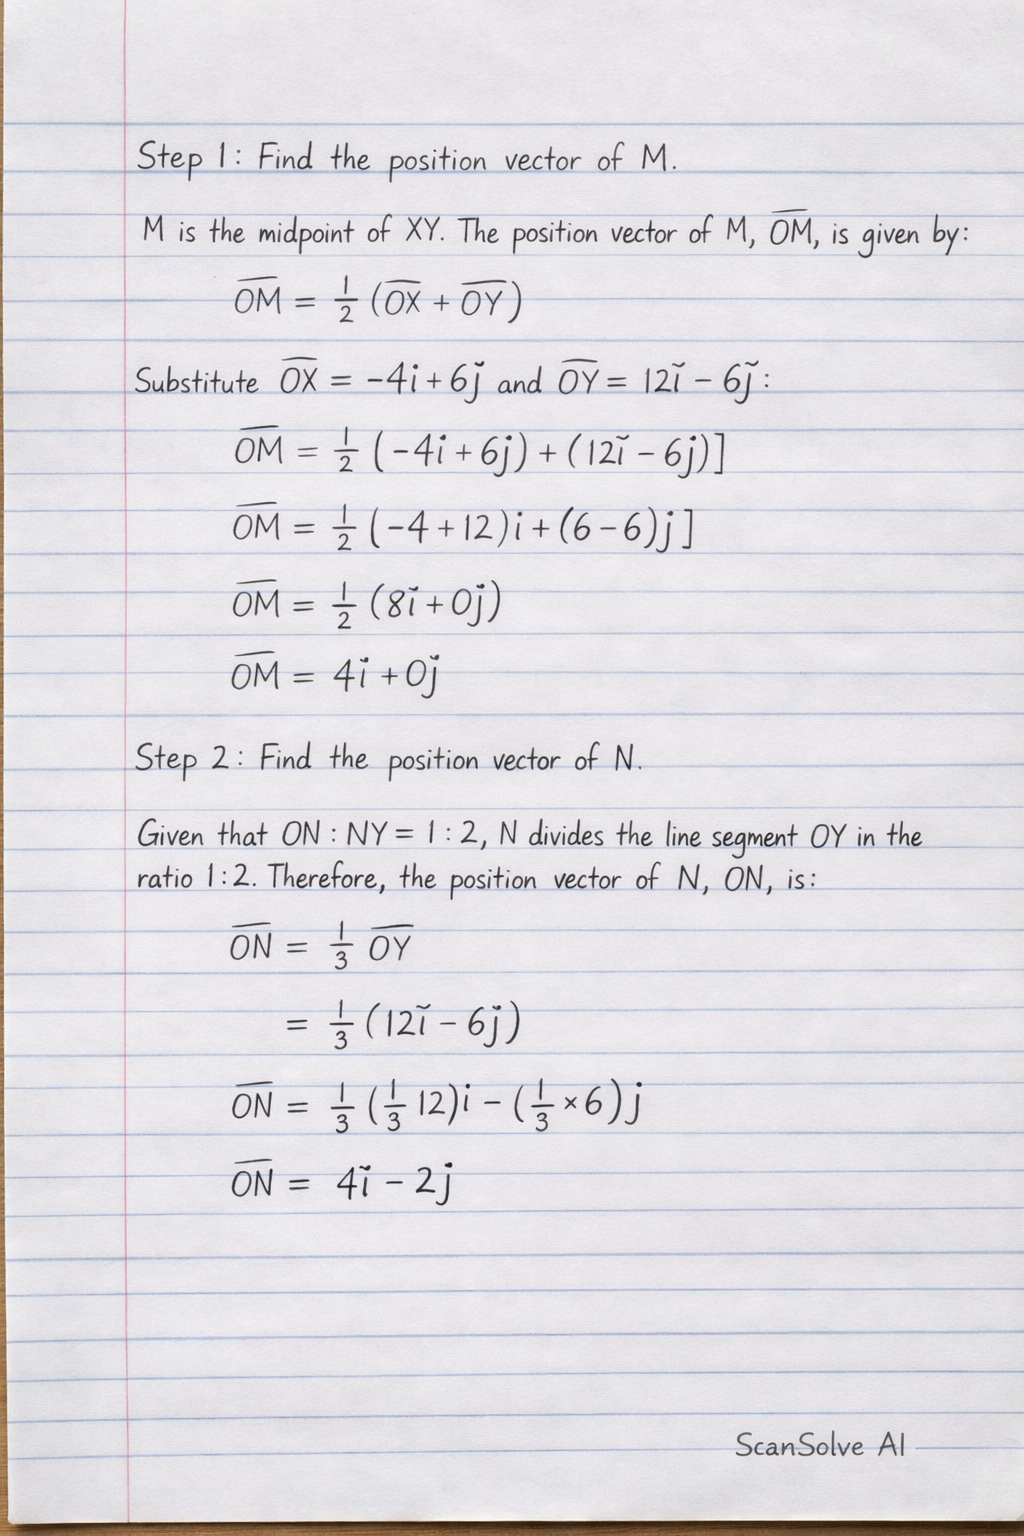 Step 1: Find the position vector of M.
M is the midpoint of XY. The position vector of M, O̅M̅, is given by:
O̅M̅ = 1/2 (O̅X̅ + O̅Y̅)
Substitute O̅X̅ = -4i + 6j̆ and O̅Y̅ = 12ĭ - 6j̆:
O̅M̅ = 1/2 (-4i + 6j) + (12ĭ - 6j)]
O̅M̅ = 1/2 (-4 + 12)i + (6 - 6)j]
O̅M̅ = 1/2 (8ĭ + 0j)
O̅M̅ = 4i + 0j
Step 2: Find the position vector of N.
Given that ON : NY = 1 : 2, N divides the line segment OY in the
ratio 1:2. Therefore, the position vector of N, ON, is:
O̅N̅ = 1/3 O̅Y̅
= 1/3 (12ĭ - 6j)
O̅N̅ = 1/3 (1/3 12)i - (1/3 × 6)j
O̅N̅ = 4ĭ - 2j
ScanSolve AI